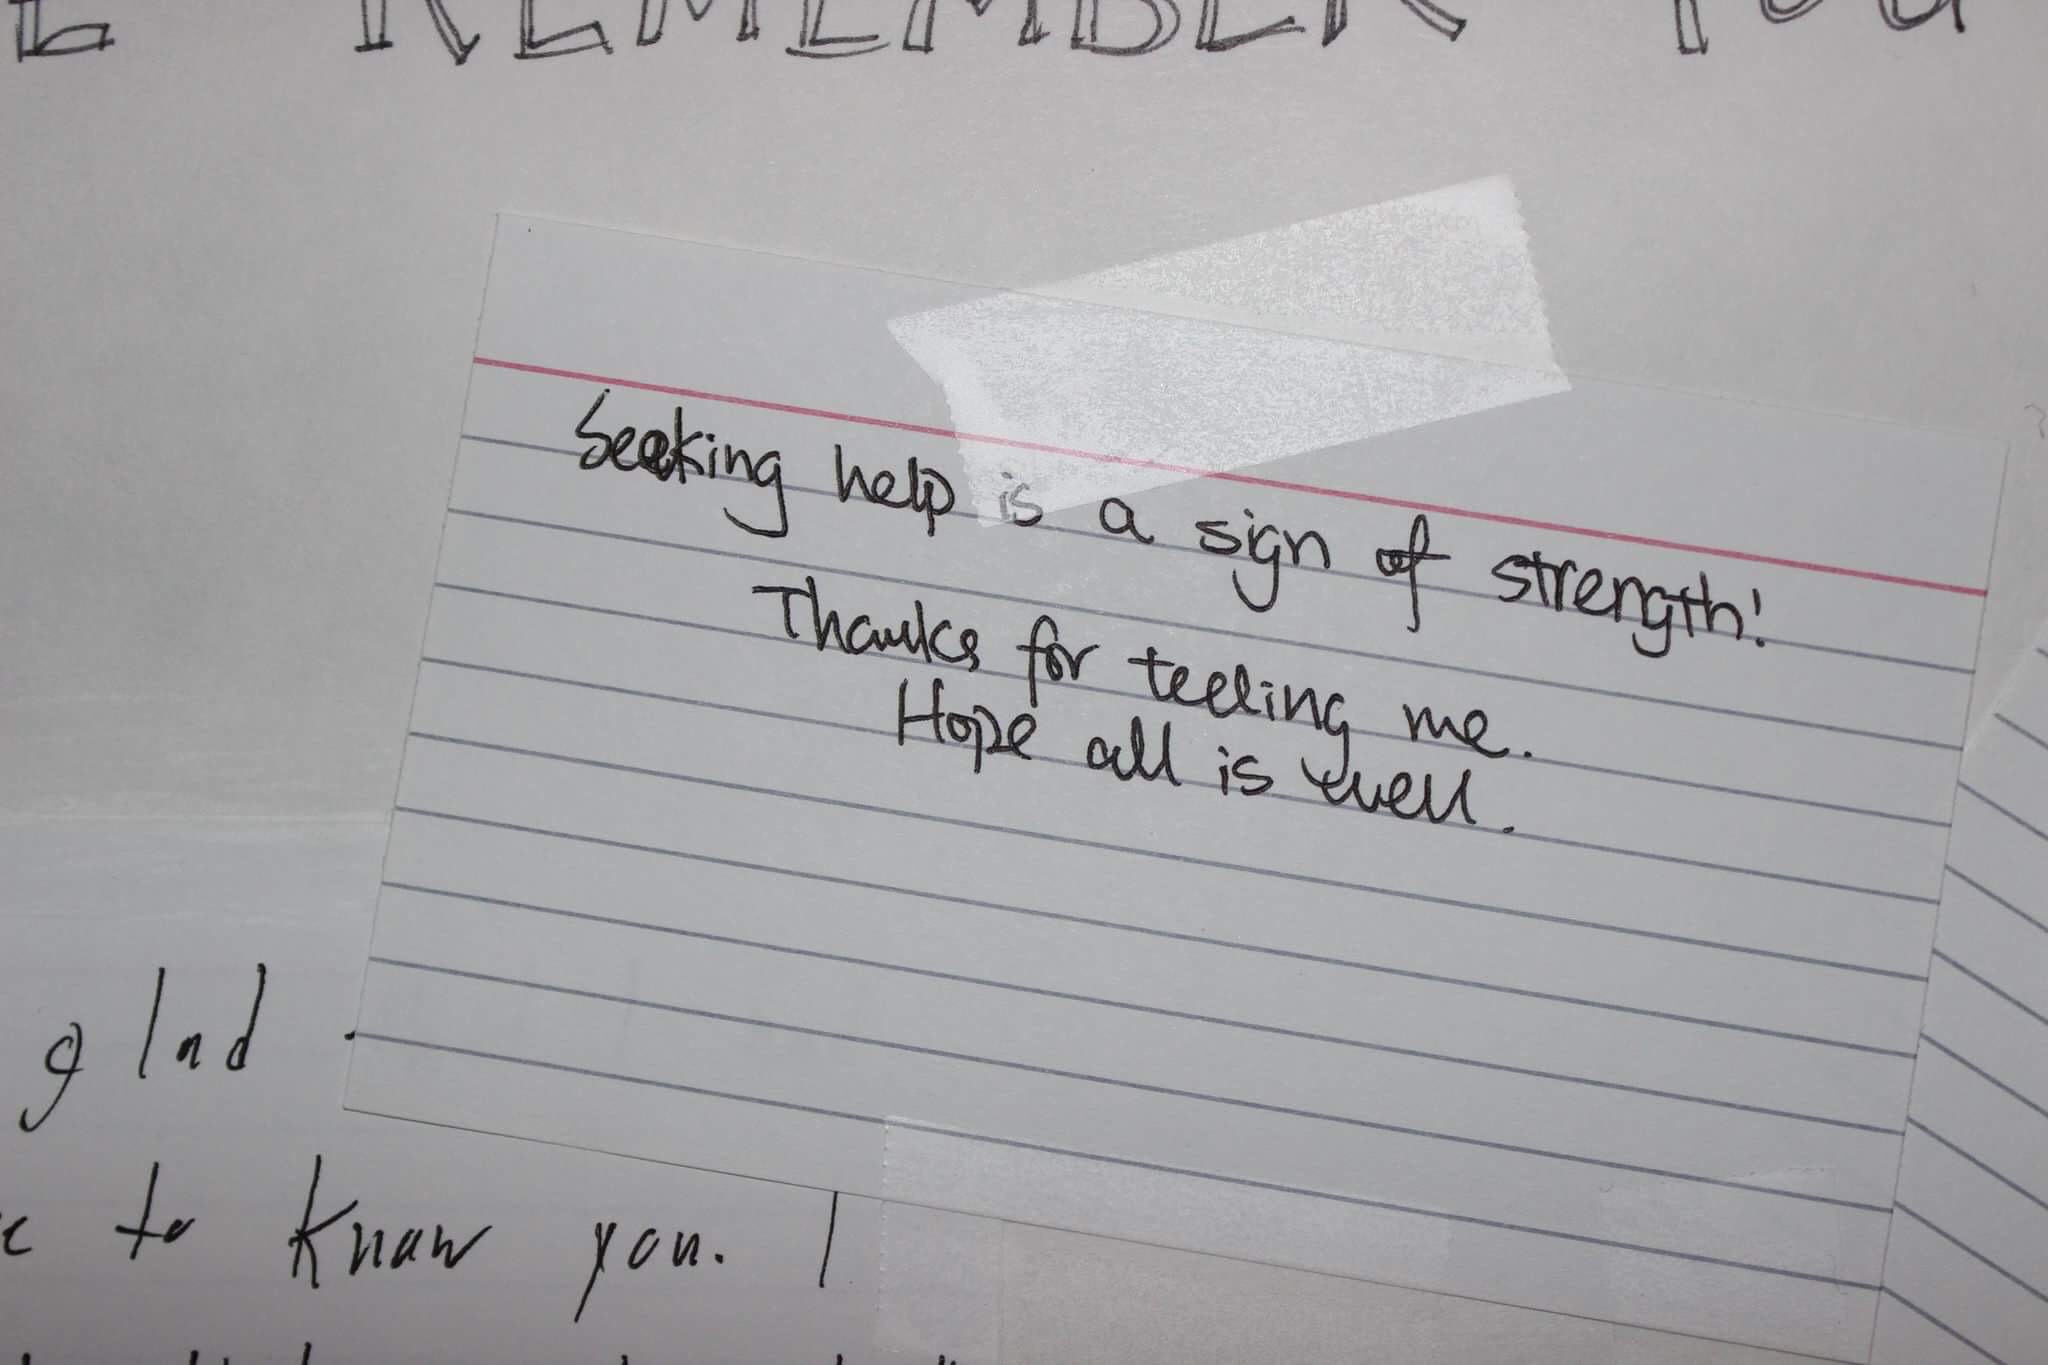 REMEMBER YOU
Seeking help is a sign of strength!
Thanks for telling me.
Hope all is well.
glad
to know you. I